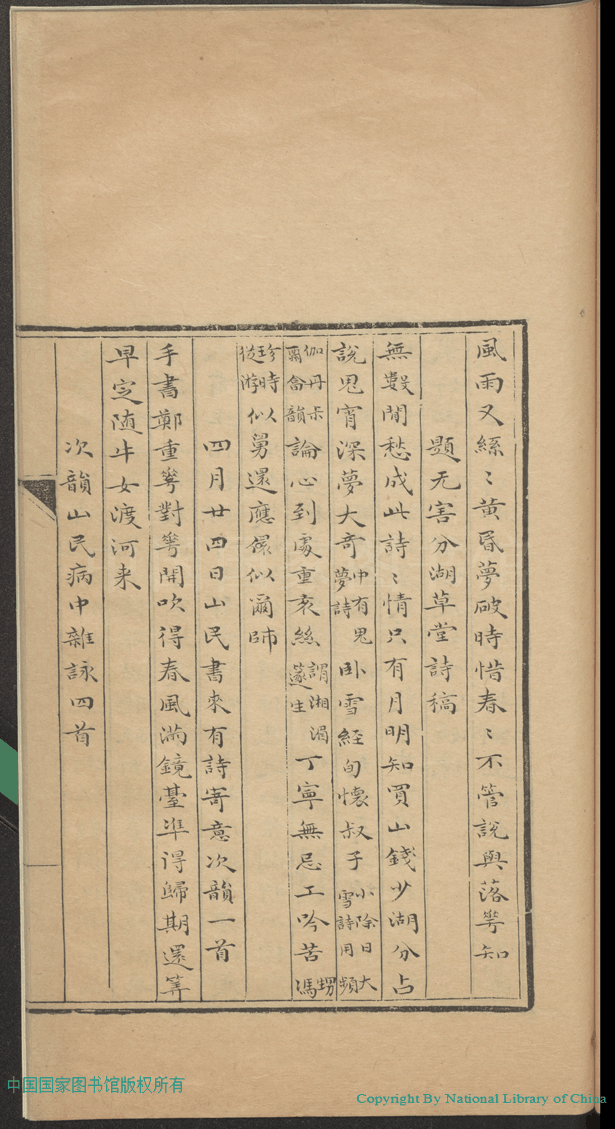 風雨又絲〻黃昏夢破時惜春〻不管說與落蕚知
題无害分湖草堂詩稿
無數閒愁成此詩〻情只有月明知買山錢少湖分占
說鬼宵深夢大奇中有鬼夢詩臥雪經旬懷叔子小除日大雪詩用頻
伽丹卡爾畣韻論心到處重亥絲謂湘湄邃生丁寧無忌工吟苦甥馮
珍時從游似舅還應儼似爾師
四月廿四日山民書來有詩寄意次韻一首
手書鄭重蕚對蕚開吹得春風滿鏡臺準得歸期還筭
早定随牛女渡河来
次韻山民病中雜詠四首
中国国家图书馆版权所有
Copyright By National Library of China